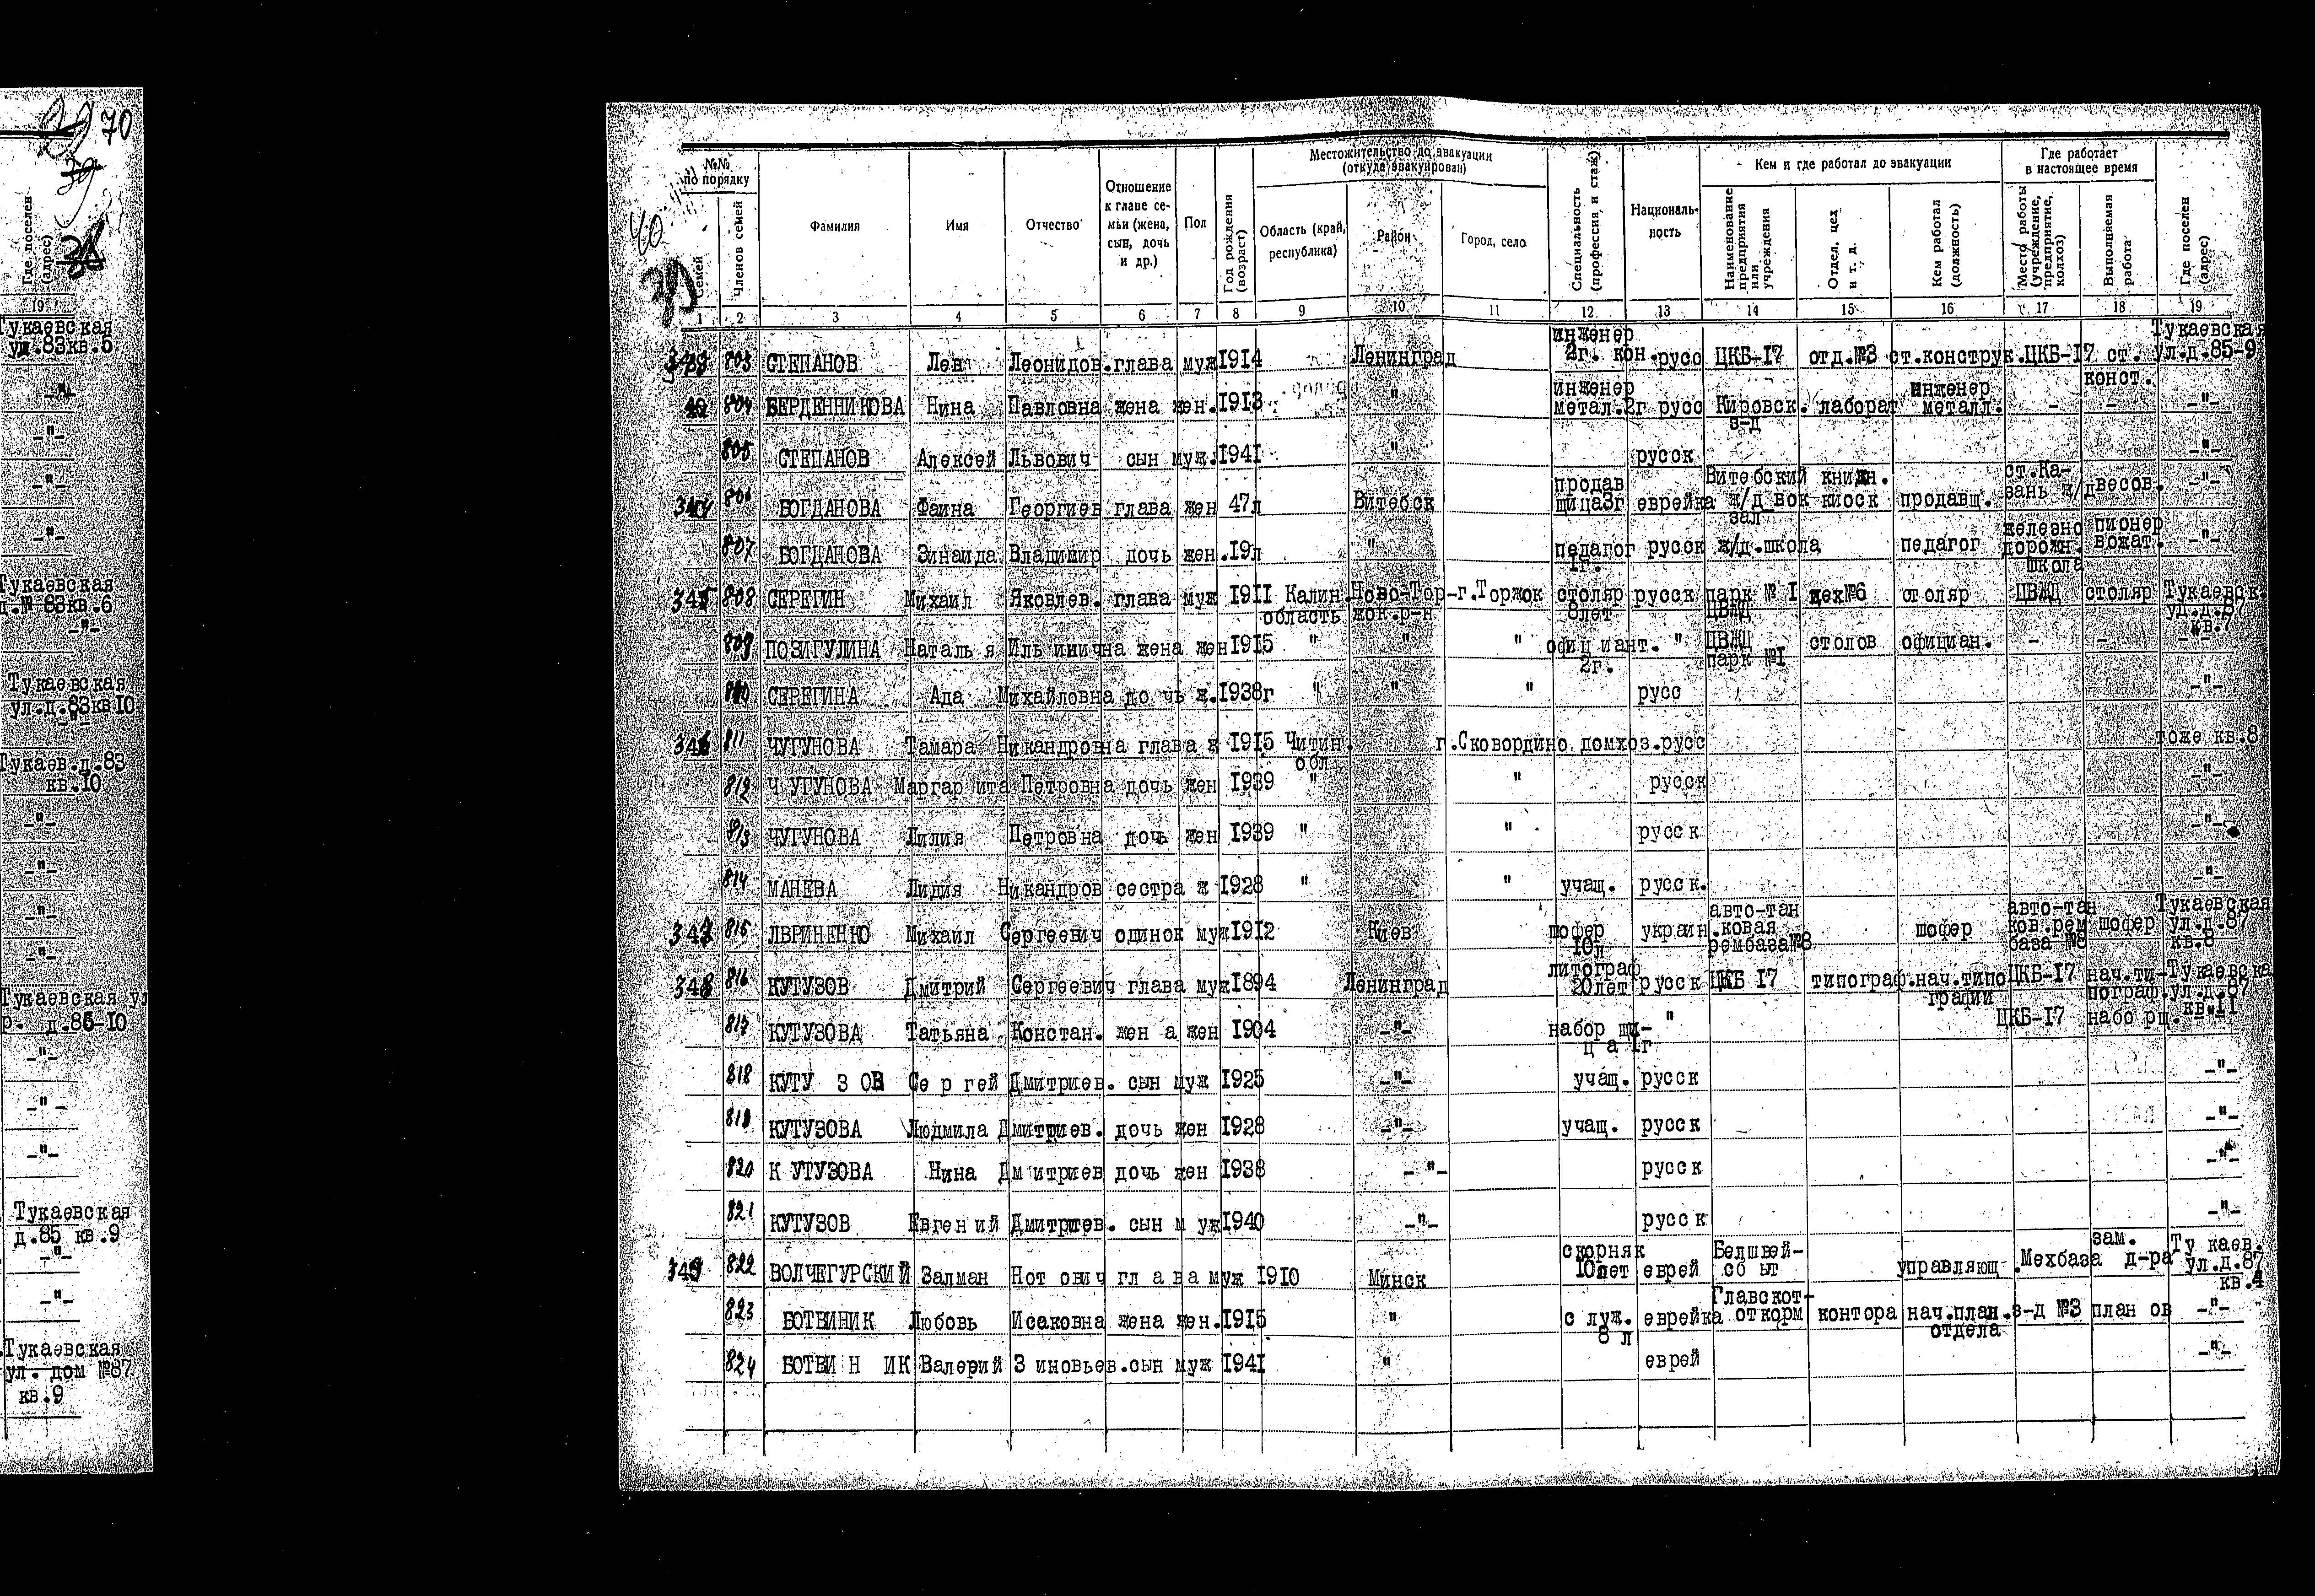 70
39
Где поселен (адрес)
19
Тукаевская
ул.83кв.5
-"-
-"-
-"-
-"-
Тукаевская
д.№ 83кв.6
-"-
Тукаевская
ул.д.83кв10
-"-
Тукаев.д.83
кв.10
-"-
-"-
-"-
-"-
Тукаевская ул
р. д.85-10
-"-
-"-
-"-
Тукаевская
д.85 кв.9
-"-
-"-
Тукаевская
ул. дом №87
кв.9
40
№№ по порядку
Семей
Членов семей
Фамилия
Имя
Отчество
Отношение к главе се-
мьи (жена, сын, дочь и др.)
Пол
Год рождения (возраст)
Местожительство до эвакуации
(откуда эвакуирован)
Область (край, республика)
Район
Город, село
Специальность (профессия и стаж)
Националь-
ность
Кем и где работал до эвакуации
Наименование предприятия или учреждения
Отдел, цех и т. д.
Кем работал (должность)
Где работает
в настоящее время
Место работы (учреждение, предприятие, колхоз)
Выполняемая работа
Где поселен (адрес)
1 2 3 4 5 6 7 8 9 10 11 12 13 14 15 16 17 18 19
инженер Тукаевская
803 СТЕПАНОВ Лев Леонидов.глава муж1914 Ленинград 2г. кон.русс ЦКБ-17 отд.№3 ст.конструк.ЦКБ-17 ст. ул.д.85-9
инженер инженер конст.
804 БЕРДЕННИКОВА Нина Павловна жена жен.1913 " метал.2г русс Кировск. лаборат металл. - - -"-
з-д
805 СТЕПАНОВ Алексей Львович сын муж.1941 " русск -"-
продав Витебский книжн. ст.Ка-
344 806 БОГДАНОВА Фаина Георгиев глава жен 47л Витебск щица3г еврейка ж/д вок киоск продавщ. зань ж/д весов. -"-
зал железно пионер
807 БОГДАНОВА Зинаида Владимир дочь жен.19л " педагог русск ж/д.школа педагог дорожн. вожат. -"-
1г. школа
345 808 СЕРЕГИН Михаил Яковлев. глава муж 1911 Калин.Ново-Тор-г.Торжок столяр русск парк № 1 цех№6 столяр ЦВЖД столяр Тукаевск.
область жок.р-н 8лет ЦВЖД ул.д.87
кв.7
809 ПОЗИГУЛИНА Наталья Ильинична жена жен1915 " " " официант. " ЦВЖД столов официан. - - -"-
2г. парк №1
810 СЕРЕГИНА Ада Михайловна дочь ж.1938г " " " русс -"-
346 811 ЧУГУНОВА Тамара Никандровна глава ж 1915 Читин. г.Сковордино домхоз.русс тоже кв.8
обл
812 ЧУГУНОВА Маргарита Петровна дочь жен 1939 " " русск -"-
813 ЧУГУНОВА Лилия Петровна дочь жен 1939 " " русск -"-
814 МАНЕВА Лидия Никандров сестра ж 1928 " " учащ. русск. -"-
авто-тан авто-тан Тукаевская
347 815 ЛВРИНЕНКО Михаил Сергеевич одинок муж1912 Киев шофер украин.ковая шофер ков.рем шофер ул.д.87
10л рембаза№8 база №8 кв.8
литограф
348 816 КУТУЗОВ Дмитрий Сергеевич глава муж1894 Ленинград 20лет русск ЦКБ 17 типограф.нач.типо ЦКБ-17 нач.ти-Тукаевска
графии пограф.ул.д.87
817 КУТУЗОВА Татьяна Констан. жена жен 1904 -"- наборщи- " ЦКБ-17 наборщ. кв.11
ца 1г
818 КУТУЗОВ Сергей Дмитриев. сын муж 1925 -"- учащ. русск -"-
819 КУТУЗОВА Людмила Дмитриев. дочь жен 1928 -"- учащ. русск -"-
820 КУТУЗОВА Нина Дмитриев дочь жен 1938 -"- русск -"-
821 КУТУЗОВ Евгений Дмитриев. сын муж1940 -"- русск -"-
скорняк Белшвей- зам. Тукаев.
349 822 ВОЛЧЕГУРСКИЙ Залман Нотович глава муж 1910 Минск 10лет еврей сбыт управляющ.Мехбаза д-ра ул.д.87
кв.4
Главскот-
823 БОТВИНИК Любовь Исаковна жена жен.1915 " служ. еврейка откорм контора нач.план.з-д №3 планов -"-
8 л отдела
824 БОТВИНИК Валерий Зиновьев.сын муж 1941 " еврей -"-